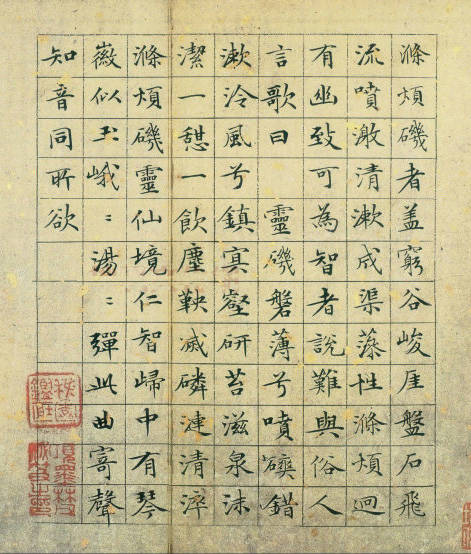 滌煩磯者盖窮谷峻厓盤石飛
流噴激清漱成渠藻性滌煩迥
有幽致可為智者說難與俗人
言歌曰 靈磯磐薄兮噴錯
漱泠風兮鎮冥壑研苔滋泉沫
潔一憩一飲塵鞅滅磷漣清淬
滌煩磯靈仙境仁智歸中有琴
徽似玉峨〻湯〻彈此曲寄聲
知音同所欲